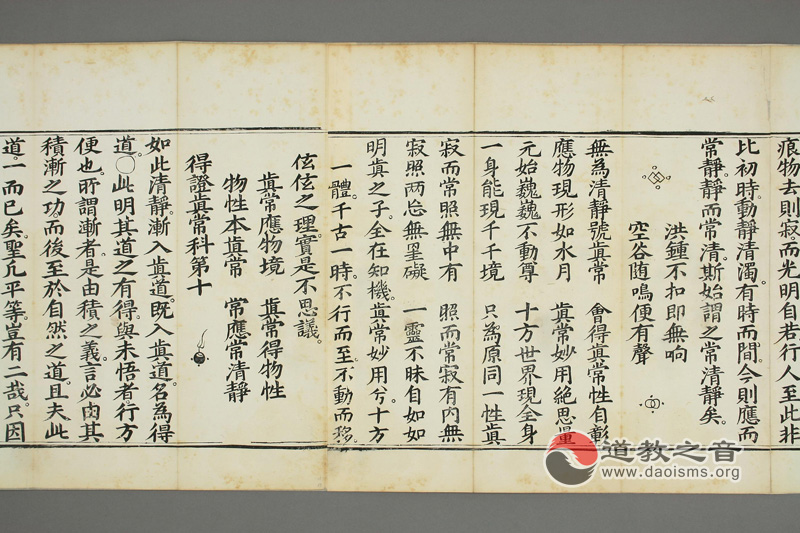 痕物去則寂而光明自若行人至此非
比初時動靜清濁有時而間今則應而
常靜靜而常清斯始謂之常清靜矣
洪鍾不扣即無响
空谷随鳴便有聲
無為清靜號真常 會得真常性自彰
應物現形如水月 真常妙用絕思量
元始巍巍不動尊 十方世界現全身
一身能現千千境 只為原同一性真
寂而常照無中有 照而常寂有内無
寂照兩忘無罣礙 一靈不昧自如如
明真之子全在知機真常妙用兮十方
一體千古一時不行而至不動而移
伭伭之理實是不思議
真常應物境 真常得物性
物性本真常 常應常清靜
得證真常科第十
如此清靜漸入真道既入真道名為得
道○此明其道之有得與未悟者行方
便也所謂漸者是由積之義言必由其
積漸之功而後至於自然之道且夫此
道一而已矣聖凡平等豈有二哉只因
道教之音
www.daoisms.org